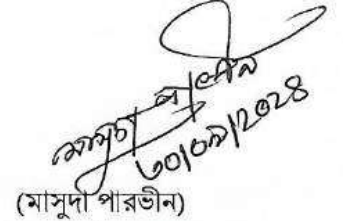 মাসুদা পারভীন
৩০/০৯/২০২৪
(মাসুদা পারভীন)